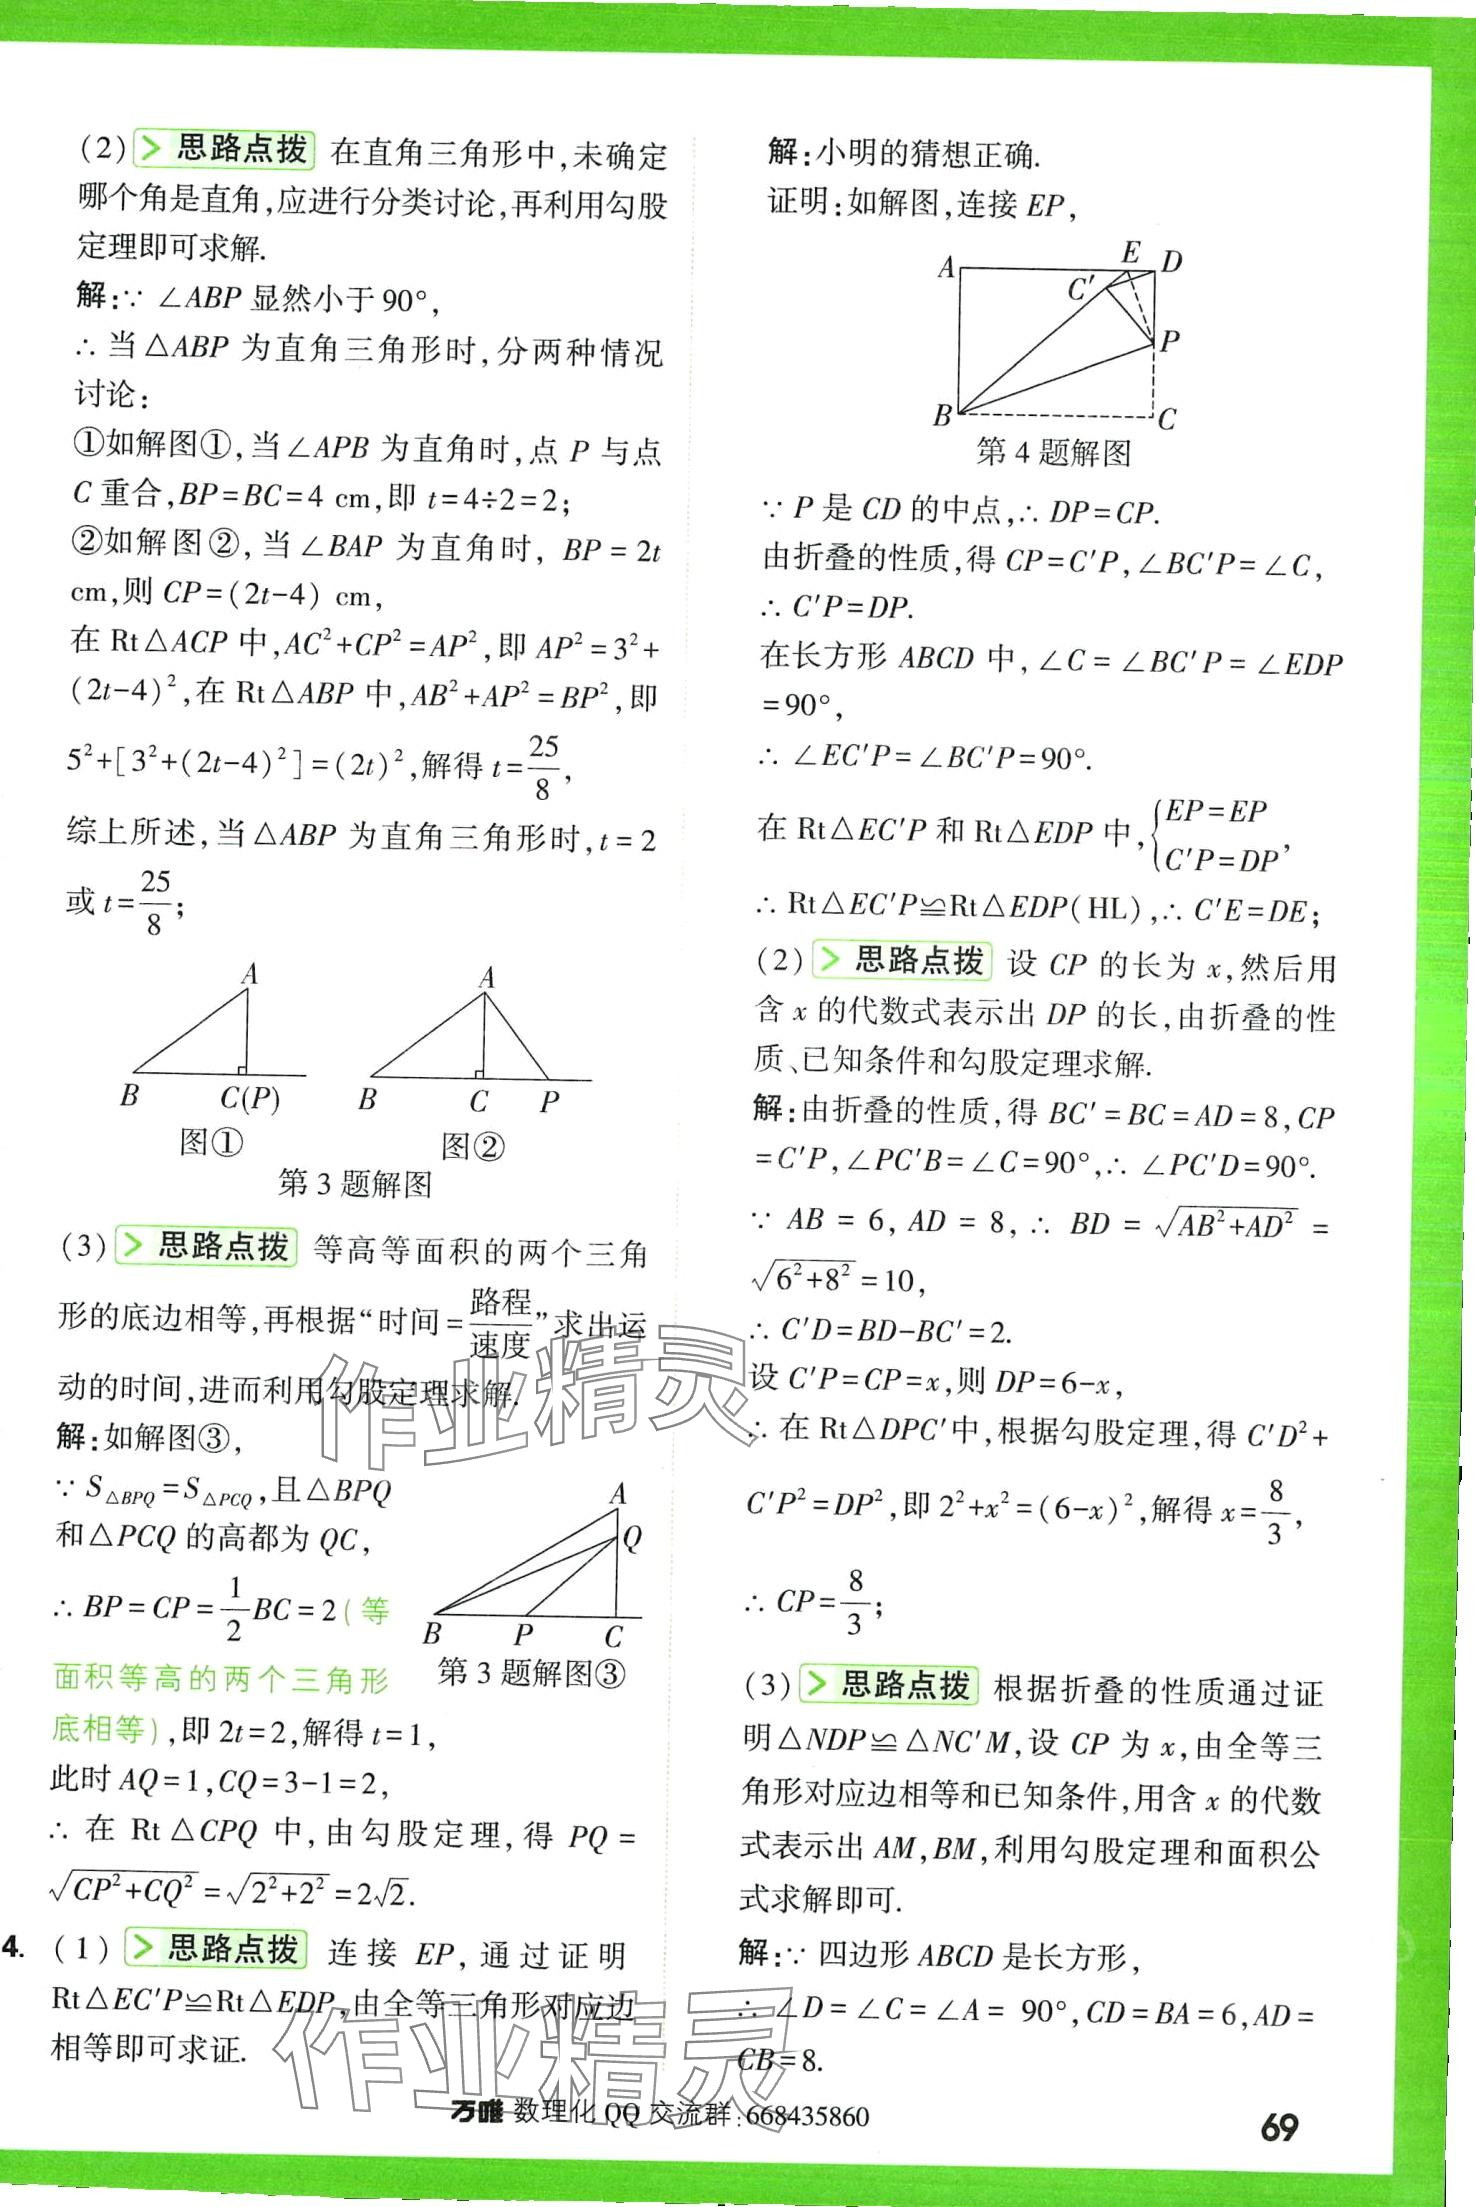 (2) > 思路点拨 在直角三角形中,未确定
哪个角是直角,应进行分类讨论,再利用勾股
定理即可求解.
解:∵ ∠ABP 显然小于 90°,
∴ 当△ABP 为直角三角形时,分两种情况
讨论:
①如解图①,当∠APB 为直角时,点 P 与点
C 重合,BP=BC=4 cm,即 t=4÷2=2;
②如解图②,当∠BAP 为直角时, BP=2t
cm,则 CP=(2t-4) cm,
在 Rt△ACP 中,AC²+CP²=AP²,即 AP²=3²+
(2t-4)²,在 Rt△ABP 中,AB²+AP²=BP²,即
5²+[3²+(2t-4)²]=(2t)²,解得 t=25/8,
综上所述,当△ABP 为直角三角形时,t=2
或 t=25/8;
A
B
C(P)
图①
A
B
C
P
图②
第 3 题解图
(3) > 思路点拨 等高等面积的两个三角
形的底边相等,再根据“时间=路程/速度”求出运
动的时间,进而利用勾股定理求解.
解:如解图③,
∵ S△BPQ=S△PCQ,且△BPQ
和△PCQ 的高都为 QC,
∴ BP=CP=1/2BC=2(等
面积等高的两个三角形
底相等),即 2t=2,解得 t=1,
A
Q
B
P
C
第 3 题解图③
此时 AQ=1,CQ=3-1=2,
∴ 在 Rt△CPQ 中,由勾股定理,得 PQ=
√(CP²+CQ²)=√(2²+2²)=2√2.
4. (1) > 思路点拨 连接 EP,通过证明
Rt△EC'P≌Rt△EDP,由全等三角形对应边
相等即可求证.
解:小明的猜想正确.
证明:如解图,连接 EP,
A
E
D
C'
P
B
C
第 4 题解图
∵ P 是 CD 的中点,∴ DP=CP.
由折叠的性质,得 CP=C'P,∠BC'P=∠C,
∴ C'P=DP.
在长方形 ABCD 中,∠C=∠BC'P=∠EDP
=90°,
∴ ∠EC'P=∠BC'P=90°.
在 Rt△EC'P 和 Rt△EDP 中,{EP=EP
C'P=DP,
∴ Rt△EC'P≌Rt△EDP(HL),∴ C'E=DE;
(2) > 思路点拨 设 CP 的长为 x,然后用
含 x 的代数式表示出 DP 的长,由折叠的性
质、已知条件和勾股定理求解.
解:由折叠的性质,得 BC'=BC=AD=8,CP
=C'P,∠PC'B=∠C=90°,∴ ∠PC'D=90°.
∵ AB=6,AD=8,∴ BD=√(AB²+AD²)=
√(6²+8²)=10,
∴ C'D=BD-BC'=2.
设 C'P=CP=x,则 DP=6-x,
∴ 在 Rt△DPC'中,根据勾股定理,得 C'D²+
C'P²=DP²,即 2²+x²=(6-x)²,解得 x=8/3,
∴ CP=8/3;
(3) > 思路点拨 根据折叠的性质通过证
明△NDP≌△NC'M,设 CP 为 x,由全等三
角形对应边相等和已知条件,用含 x 的代数
式表示出 AM,BM,利用勾股定理和面积公
式求解即可.
解:∵ 四边形 ABCD 是长方形,
∴ ∠D=∠C=∠A= 90°,CD=BA=6,AD=
CB=8.
作业精灵
作业精灵
万唯 数理化 QQ 交流群:668435860
69